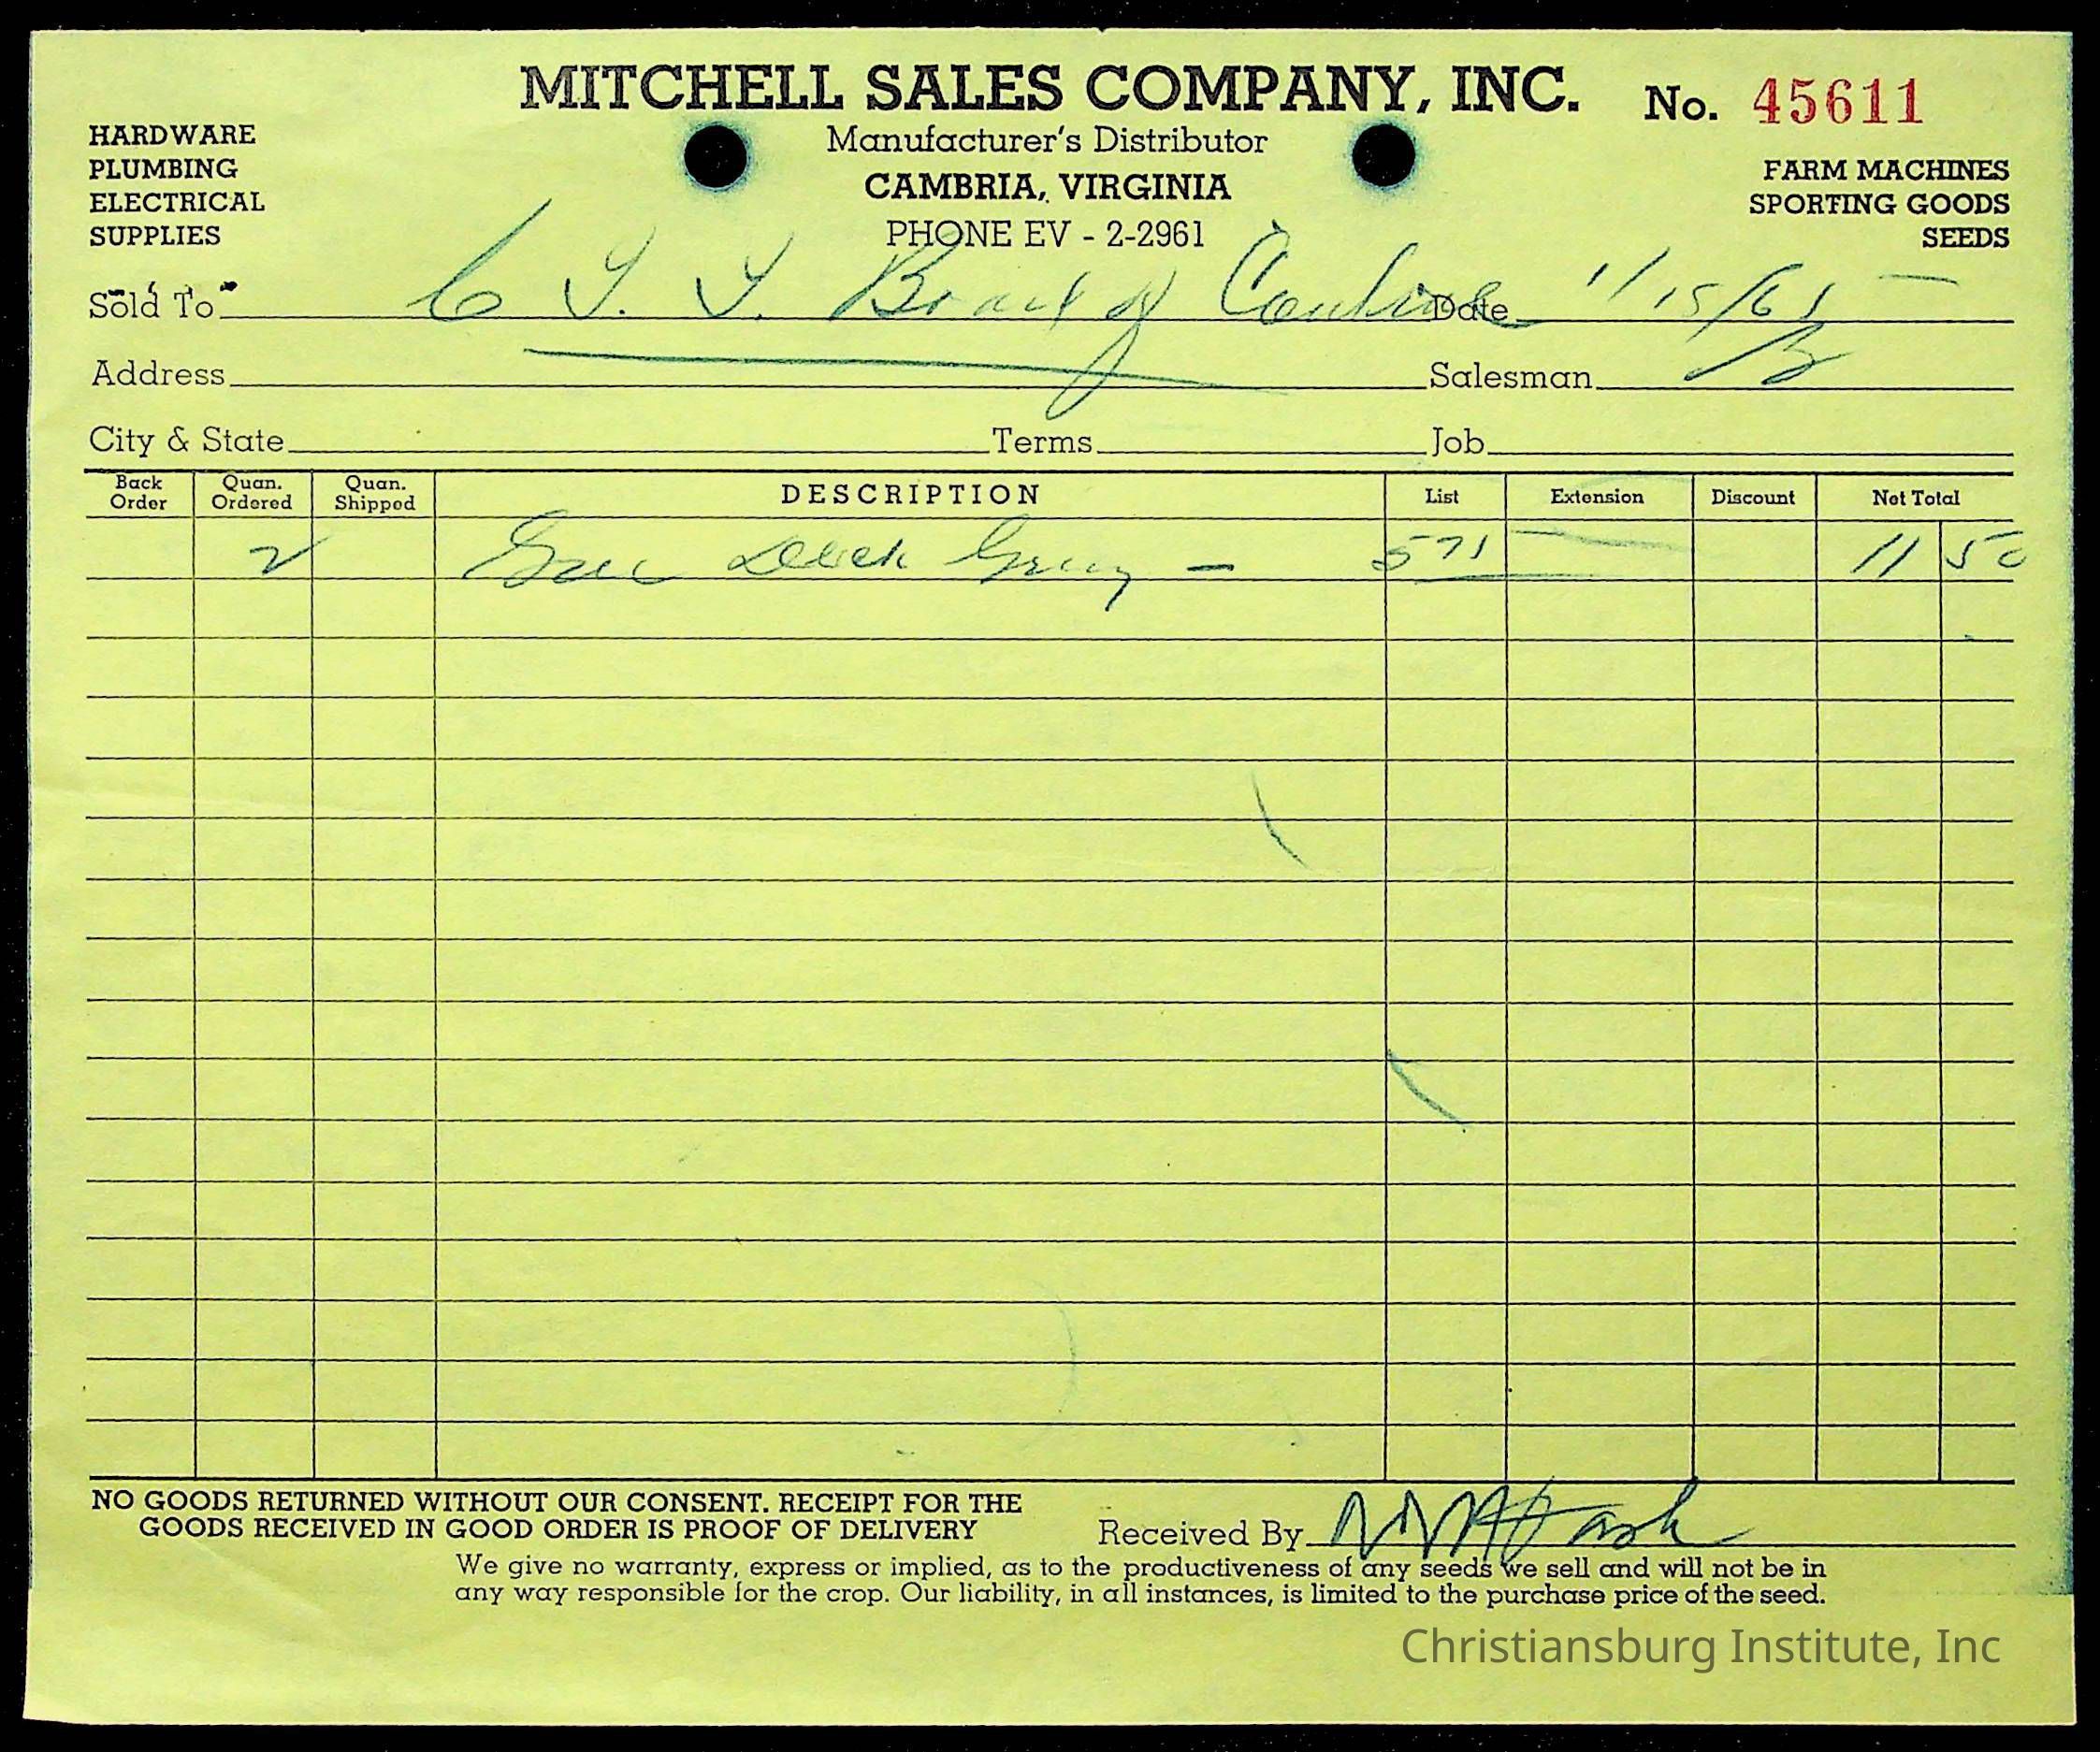 MITCHELL SALES COMPANY, INC.
No. 45611
HARDWARE
PLUMBING
ELECTRICAL
SUPPLIES
Manufacturer's Distributor
CAMBRIA, VIRGINIA
PHONE EV - 2-2961
FARM MACHINES
SPORTING GOODS
SEEDS
Sold To Board of Control Date 1/15/65
Address Salesman
City & State Terms Job
Back Order Quan. Ordered Quan. Shipped DESCRIPTION List Extension Discount Net Total
2 Deck Gray - 575 11 50
NO GOODS RETURNED WITHOUT OUR CONSENT. RECEIPT FOR THE
GOODS RECEIVED IN GOOD ORDER IS PROOF OF DELIVERY
Received By
We give no warranty, express or implied, as to the productiveness of any seeds we sell and will not be in
any way responsible for the crop. Our liability, in all instances, is limited to the purchase price of the seed.
Christiansburg Institute, Inc